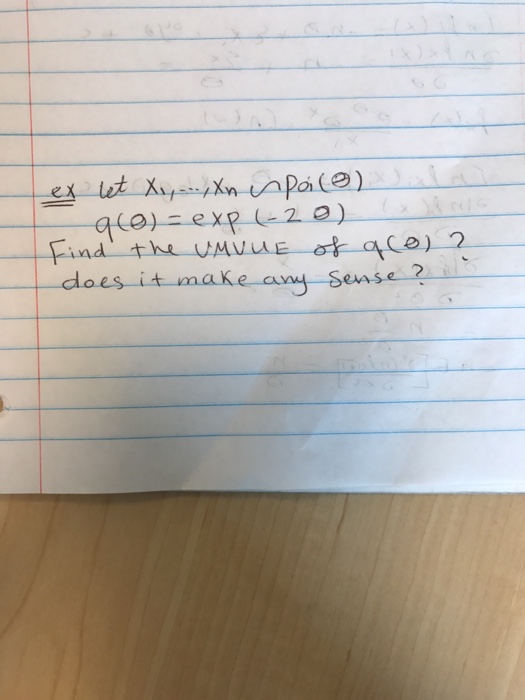 ex let X1,...,Xn ~ Poi(θ)
q(θ) = exp(-2θ)
Find the UMVUE of q(θ)?
does it make any sense?